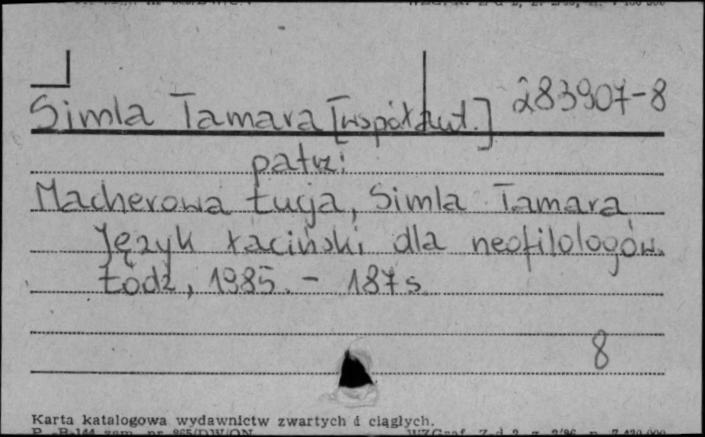 283907-8
Simla Tamara [współaut.]
patrz:
Macherowa Łucja, Simla Tamara
Język łaciński dla neofilologów.
Łódź, 1985. - 187 s.
8
Karta katalogowa wydawnictw zwartych i ciągłych.